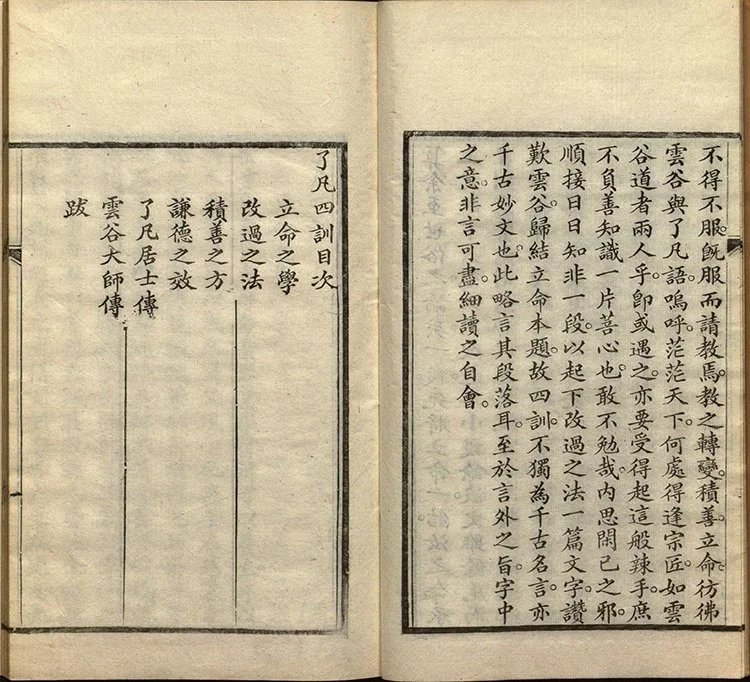 不得不服。旣服而請教焉。教之轉變。積善。立命。彷彿
雲谷與了凡語。嗚呼。茫茫天下。何處得逢宗匠。如雲
谷道者兩人乎。卽或遇之。亦要受得起這般辣手。庶
不負善知識一片菩心也。敢不勉哉。内思閑己之邪。
順接日日知非一段。以起下改過之法一篇文字。讚
歎雲谷。歸結立命本題。故四訓不獨為千古名言。亦
千古妙文也。此略言其段落耳。至於言外之旨。字中
之意。非言可盡。細讀之自會。
了凡四訓目次
立命之學
改過之法
積善之方
謙德之效
了凡居士傳
雲谷大師傳
跋